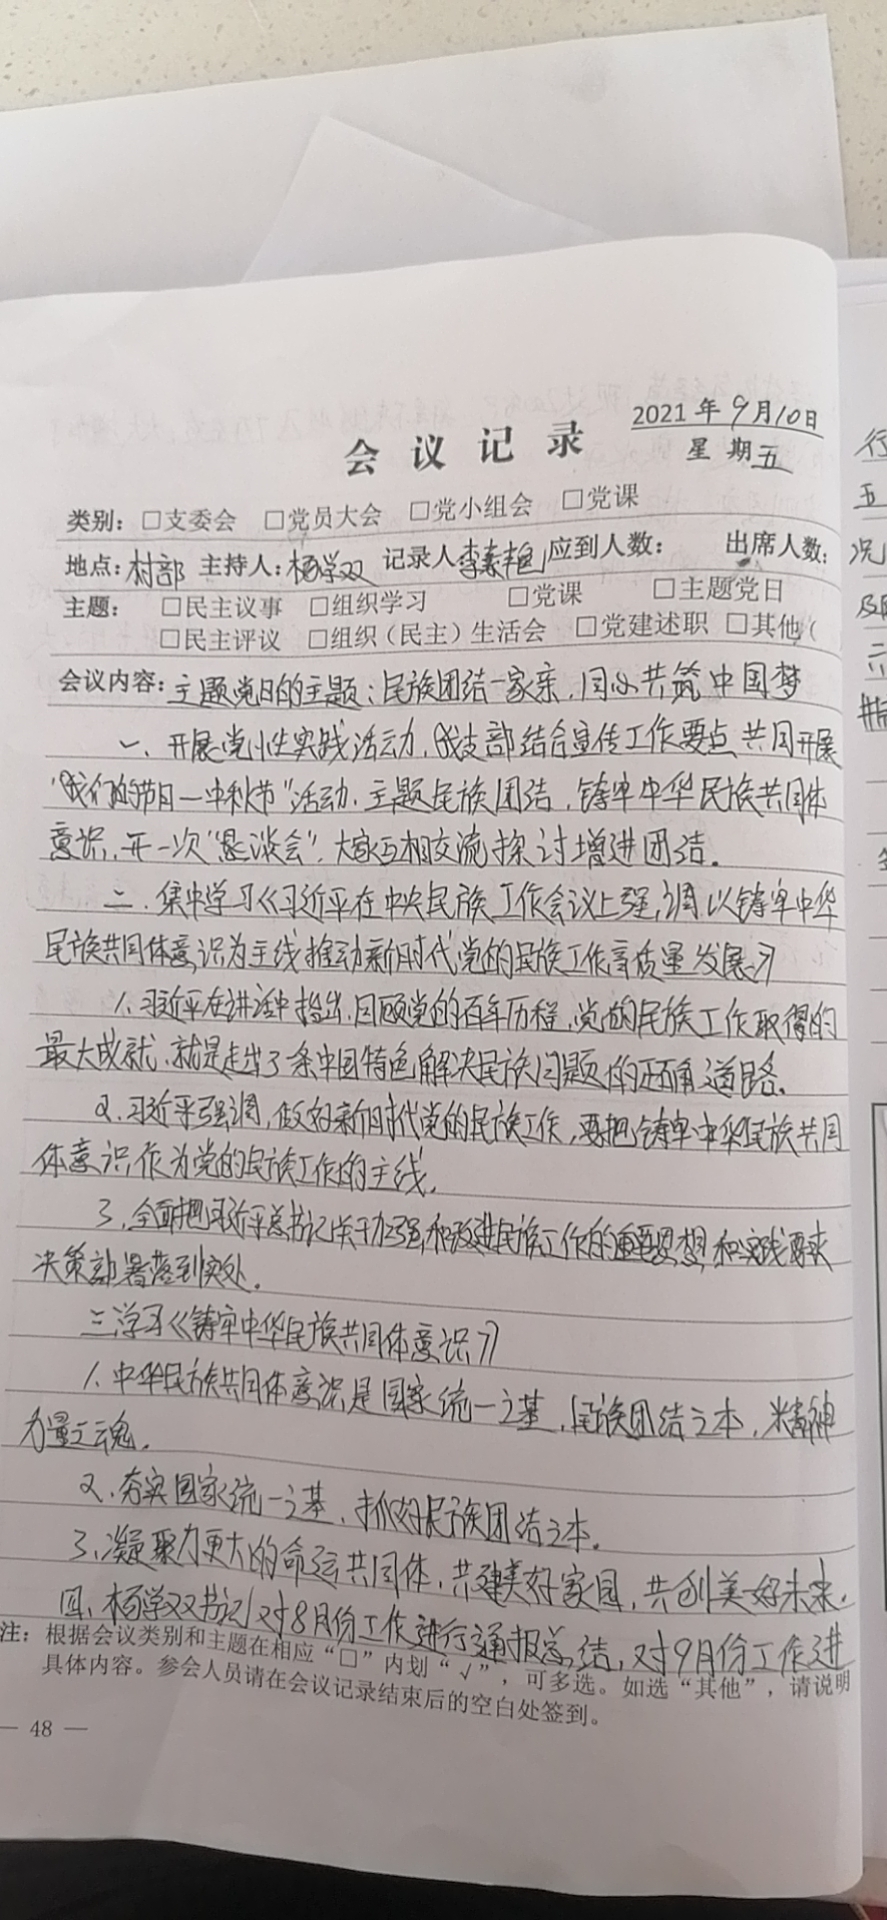 2021年9月10日
会议记录
星期五
类别：□支委会 □党员大会 □党小组会 □党课
地点：村部 主持人：杨学双 记录人李素艳 应到人数： 出席人数：
主题： □民主议事 □组织学习 □党课 □主题党日
□民主评议 □组织（民主）生活会 □党建述职 □其他（
会议内容：主题党日的主题：民族团结一家亲，同心共筑中国梦
一、开展党性实践活动，我支部结合宣传工作要点，共同开展
“我们的节日—中秋节”活动，主题民族团结，铸牢中华民族共同体
意识，开一次“恳谈会”，大家互相交流探讨增进团结。
二、集中学习《习近平在中央民族工作会议上强调，以铸牢中华
民族共同体意识为主线推动新时代党的民族工作高质量发展》
1、习近平在讲话中指出，回顾党的百年历程，党的民族工作取得的
最大成就，就是走出了条中国特色解决民族问题的正确道路。
2、习近平强调，做好新时代党的民族工作，要把铸牢中华民族共同
体意识作为党的民族工作的主线。
3、全面把习近平总书记关于加强和改进民族工作的重要思想和实践要求
决策部署落到实处。
三学习《铸牢中华民族共同体意识》
1、中华民族共同体意识是国家统一之基，民族团结之本，精神
力量之魂。
2、夯实国家统一之基，抓好民族团结之本。
3、凝聚力更大的命运共同体，共建美好家园，共创美好未来。
四、杨学双书记对8月份工作进行通报总结，对9月份工作进
注：根据会议类别和主题在相应“□”内划“√”，可多选。如选“其他”，请说明
具体内容。参会人员请在会议记录结束后的空白处签到。
— 48 —
行
五
况
及
六